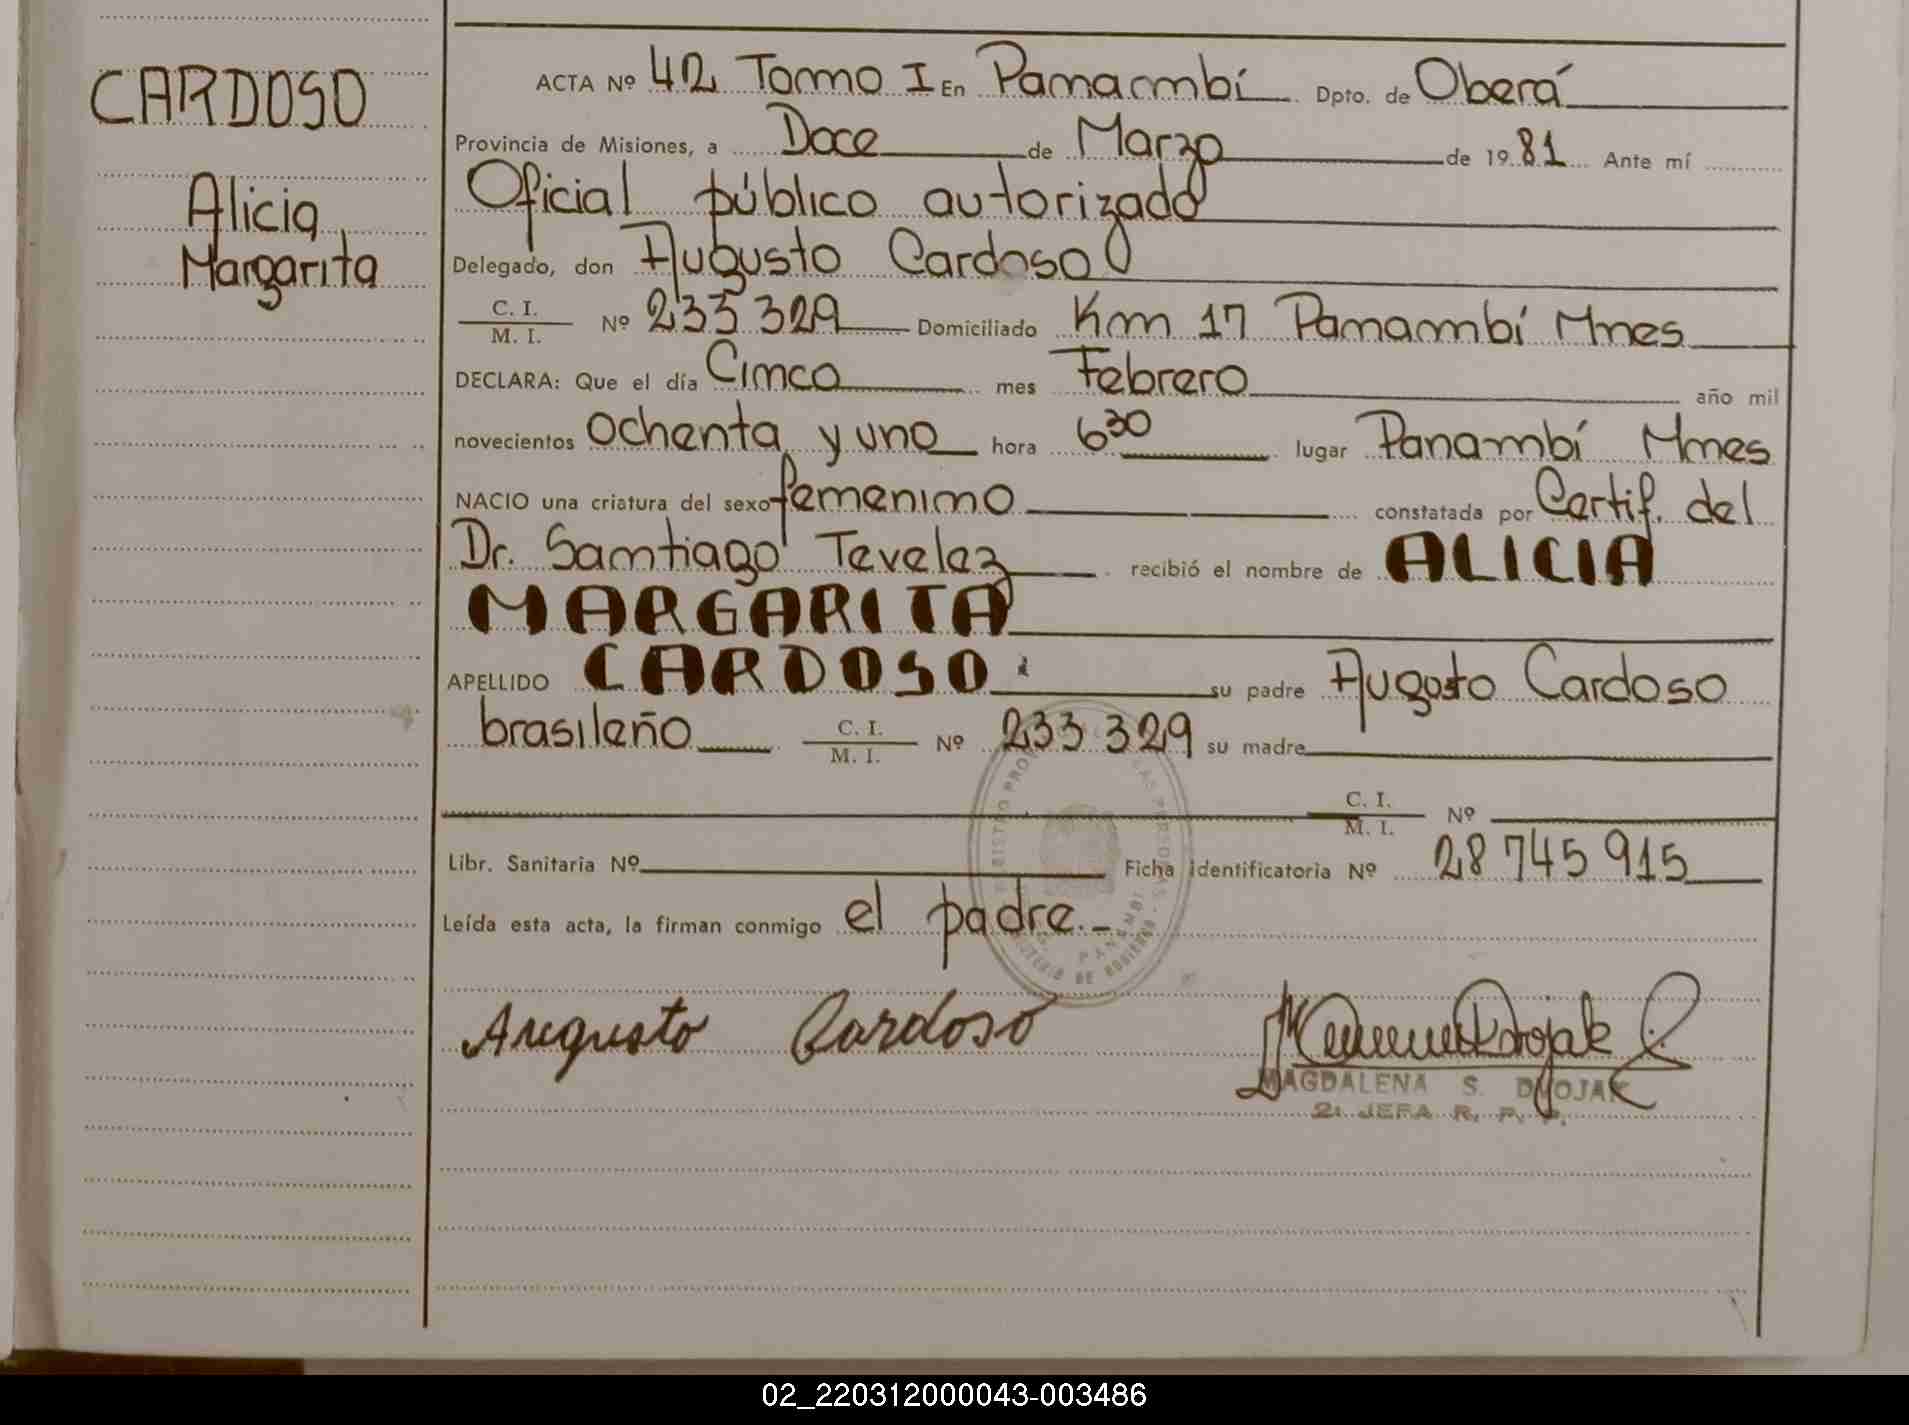 CARDOSO
Alicia
Margarita
ACTA Nº 42 Tomo I En Panambí Dpto. de Oberá
Provincia de Misiones, a Doce de Marzo de 1981 Ante mí
Oficial público autorizado
Delegado, don Augusto Cardoso
C. I.
M. I. Nº 233 329 Domiciliado Km 17 Panambí Mnes
DECLARA: Que el día Cinco mes Febrero año mil
novecientos ochenta y uno hora 6 30 lugar Panambí Mnes
NACIO una criatura del sexo femenino constatada por Certif. del
Dr. Santiago Tevelez recibió el nombre de ALICIA
MARGARITA
APELLIDO CARDOSO su padre Augusto Cardoso
brasileño C. I.
M. I. Nº 233 329 su madre
C. I.
M. I. Nº
Libr. Sanitaria Nº Ficha identificatoria Nº 28 745 915
Leída esta acta, la firman conmigo el padre.-
PANAMBI
Augusto Cardoso
MAGDALENA S. DVOJAK
2. JEFA R. P.
02_220312000043-003486